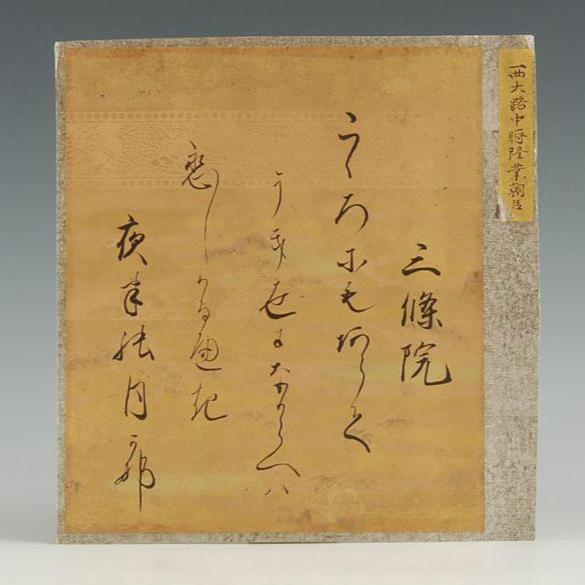 西大路中将隆業朝臣
三條院
こゝろにもあらて
うき世になからへハ
恋しかるへき
夜半能月かな